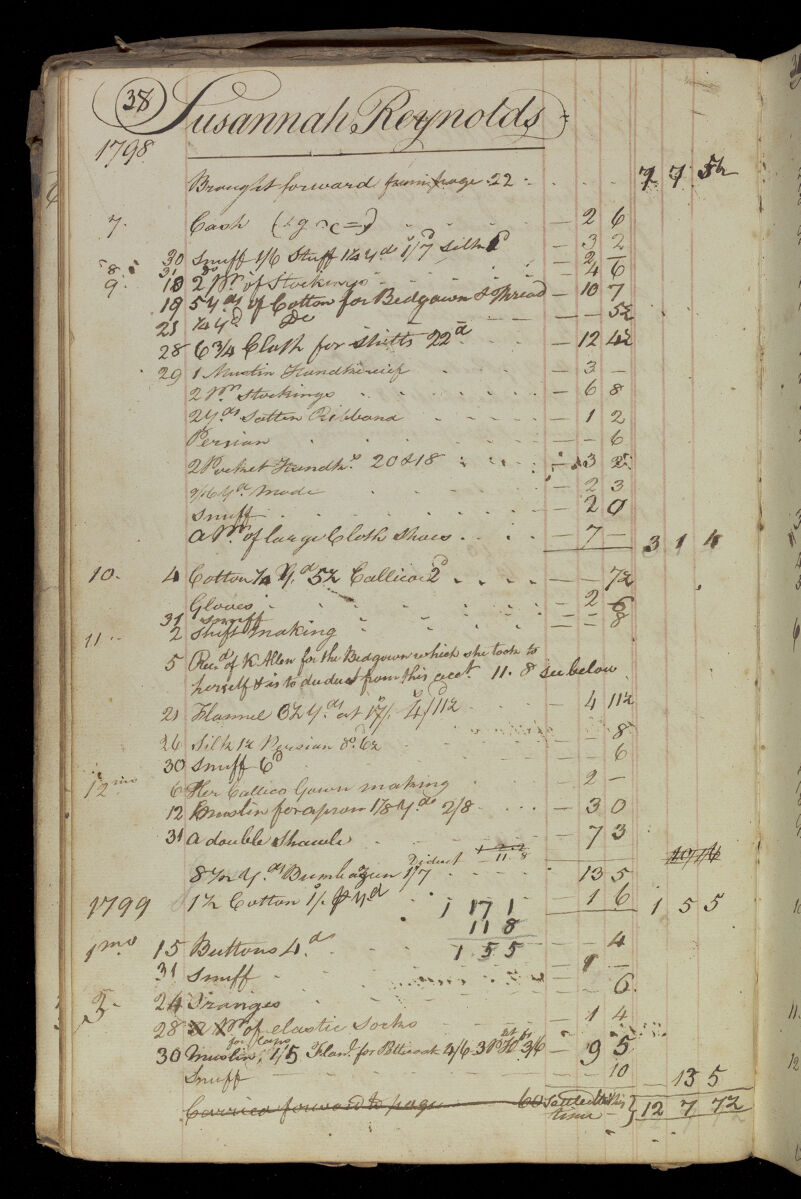 38 Susannah Reynolds
1798
Brought forward from page 22 - 7 7 5½
7 Cash — 2 6
30 Snuff 1/6 Stuff ¼ yd 1/7 Silk — 3 2
8 31 do — 2 —
9 18 2 Pr. of Stockings — 4 6
19 5 yds of Cotton for Bedgown & Thread — 10 7
21 ¼ yd Do — — 5½
28 6 3/4 Cloth for shifts 22d — 12 4½
29 1 Muslin Handkercief — 3 —
2 Pr Stockings — 6 8
2 Yds Satten Ribband — 1 2
Persian — — 6
2 Pocket Handks. 20 & 18 — 3 2
Mode — 2 3
Snuff — 2 0
a Pr. of large Cloth Shoes — 7 — 3 1 4
10. 4 Cotton ¼ Yd 5½ Callico 2d — — 7½
Gloves — 2 6
31 Snuff — — 8
11 2 Shift making
5 Recd. of K Allen for the Bedgown which she took to
herself & is to deduct from this acct. 11. 8 see below
21 Flannel 3½ Yds at 17/ 4/11½ 4 11½
26 Silk 1½ Persian 8d. 6½ — 8
30 Snuff 6d 6
12mo 6 Her Callico Gown making — 2 —
12 Muslin for apron 1/8 Yds 2/8 — 3 0
31 a double Shawle — 7 3
Diduct 11 8
8 1/2 Yds Bumbazun 1/7 — 13 5
1799 1½ Cotton 1/. p yd — 1 6 1 5 5
1 17 1
11 8
1 5 5
1mo 15 Buttons 4d — 4
31 Snuff — 1 —
24 Oranges — 6
3 28 Pr of elastic Socks — 1 4
for Caps
30 Muslin, 1/5 Flanl. for Petticoat 4/6 3/6 — 9 5
Snuff — — 10 — 13 5
Carried forward to page 60 Settled this
time 12 7 7½